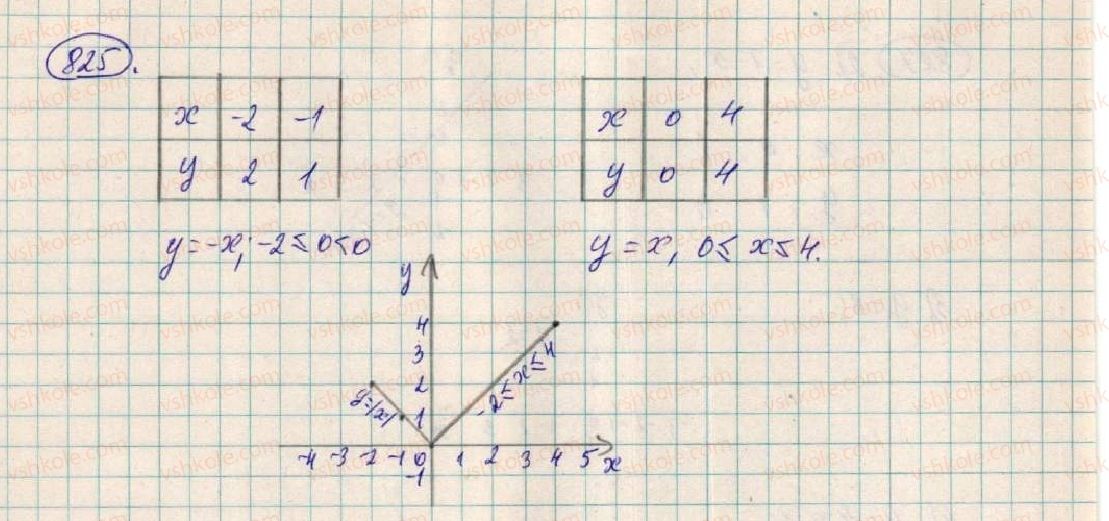 825.
x -2 -1
y 2 1
x 0 4
y 0 4
y = -x; -2 ≤ 0 ≤ 0
y = x, 0 ≤ x ≤ 4.
y
4
3
2
1
y=|x|
-2 ≤ x ≤ 4
-4 -3 -2 -1 0 1 2 3 4 5 x
-1
vshkole.com